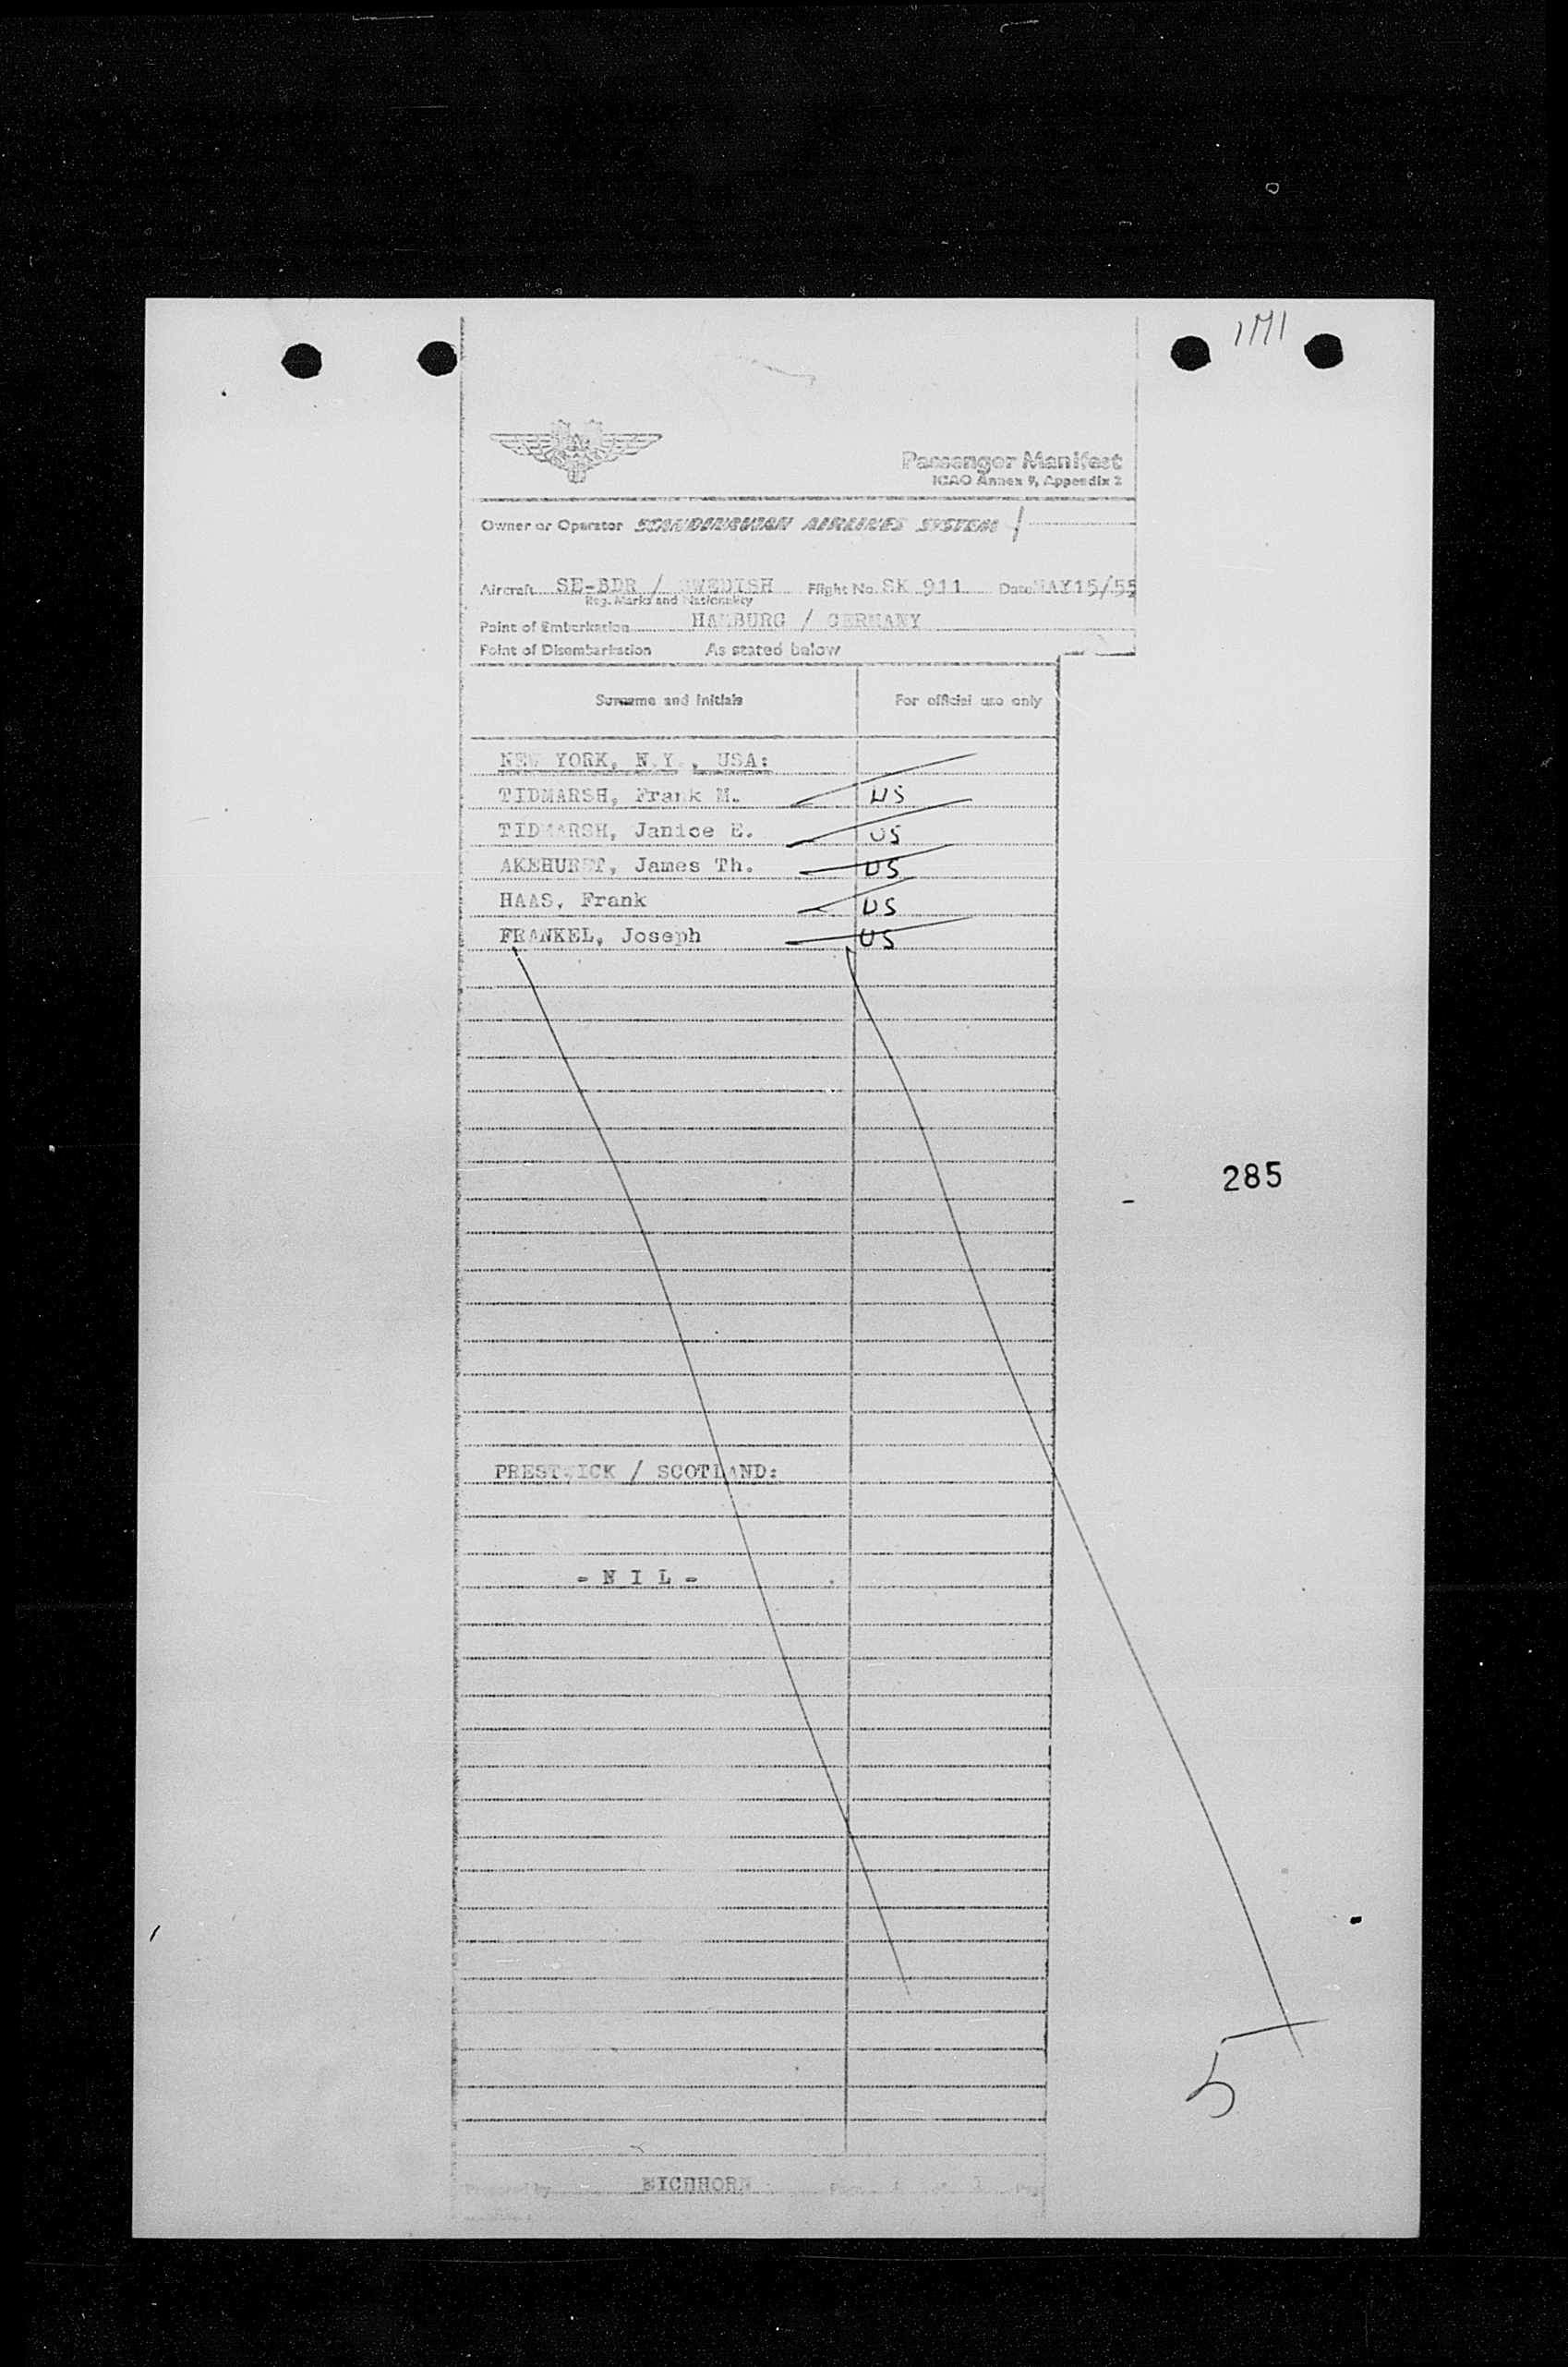 1M1
Passenger Manifest
ICAO Annex 9, Appendix 2
Owner or Operator SCANDINAVIAN AIRLINES SYSTEM
Aircraft SE-BDR / SWEDISH Flight No. SK 911 Date MAY15/55
Reg. Marks and Nationality
Point of Embarkation HAMBURG / GERMANY
Point of Disembarkation As stated below
Surname and initials For official use only
NEW YORK, N.Y., USA:
TIDMARSH, Frank M. US
TIDMARSH, Janice E. US
AKEHURST, James Th. US
HAAS, Frank US
FRANKEL, Joseph US
285
PRESTWICK / SCOTLAND:
- N I L -
5
Prepared by EICHHORN